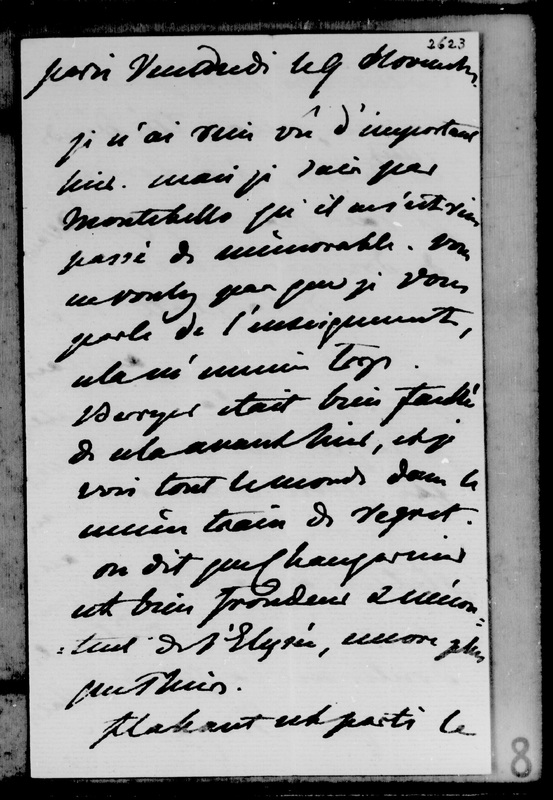 2623
Paris Vendredi le 9 Novembre
je n'ai rien vu d'important
hier. mais je sais par
Montebello qu'il ne s'est rien
passé de mémorable. vous
ne voulez pas que je vous
parle de l'enseignement,
cela m'ennuie trop.
Berryer était bien fâché
de cela avant hier, et je
vois tout le monde dans le
même train de regret.
on dit que Changarnier
est bien frondeur & mécon-
-tent de l'Elysée, encore plus
que Thiers.
Flahaut est parti le
8